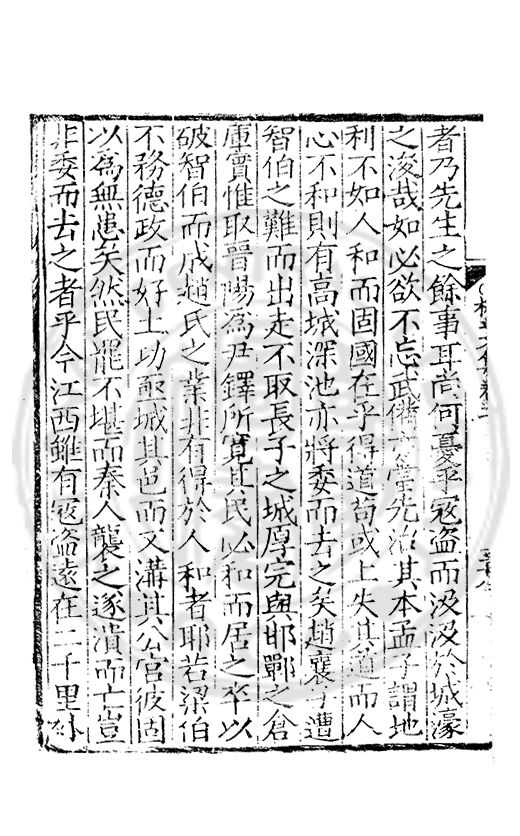 者乃先生之餘事耳尚何憂乎寇盜而汲汲於城濠
之浚哉如必欲不忘武備亦當先治其本孟子謂地
利不如人和而固國在乎得道苟或上失其道而人
心不和則有高城深池亦將委而去之矣趙襄子遭
智伯之難而出走不取長子之城厚完與邯鄲之倉
庫實惟取晉陽為尹鐸所寬其民必和而居之卒以
破智伯而成趙氏之業非有得於人和者耶若梁伯
不務德政而好土功亟城其邑而又溝其公宮彼固
以為無患矣然民罷不堪而秦人襲之遂潰而亡豈
非委而去之者乎今江西雖有寇盜遠在二千里外